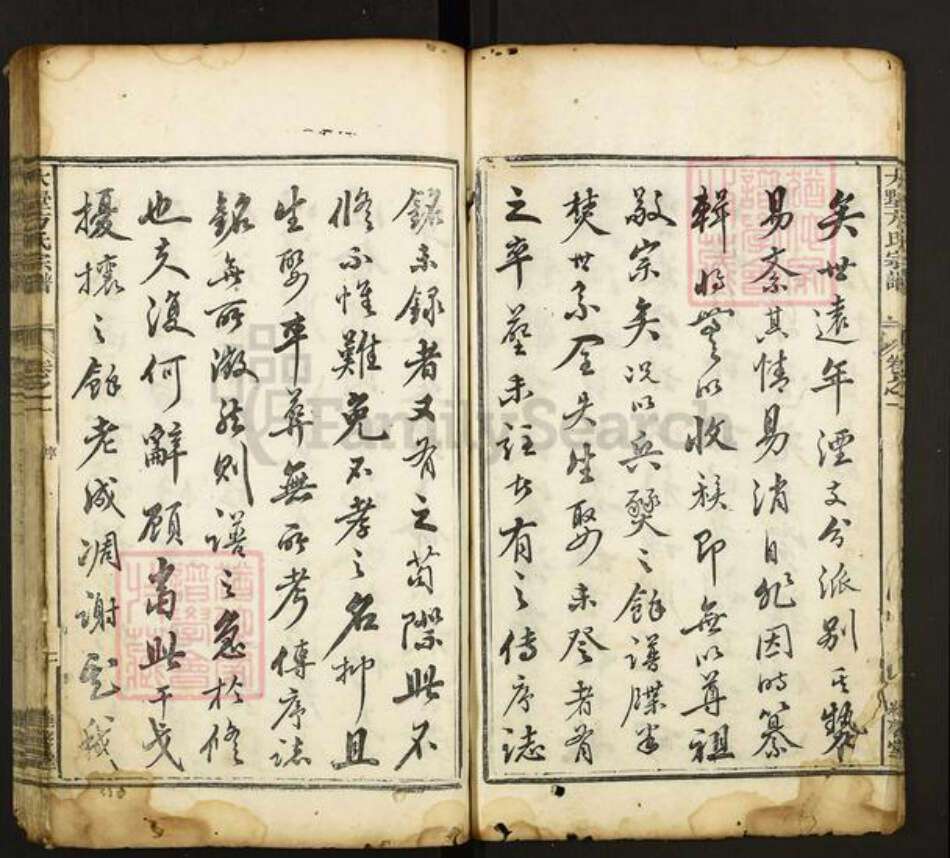 矣世遠年湮支分派別其勢
易紊其情易消自非因時纂
輯將無以收族即無以尊祖
敬宗矣況以兵燹之餘譜牒半
焚世系全失生娶未登者有
之卒葬未註者有之傳序誌
銘未錄者又有之苟際此不
修不惟難免不孝之名抑且
生娶卒葬無所考傳序誌
銘無所徵然則譜之急於修
也夫復何辭顧當此干戈
擾攘之餘老成凋謝我
大墅方氏宗譜
卷之一
序
大墅方氏宗譜
卷之一
FamilySearch